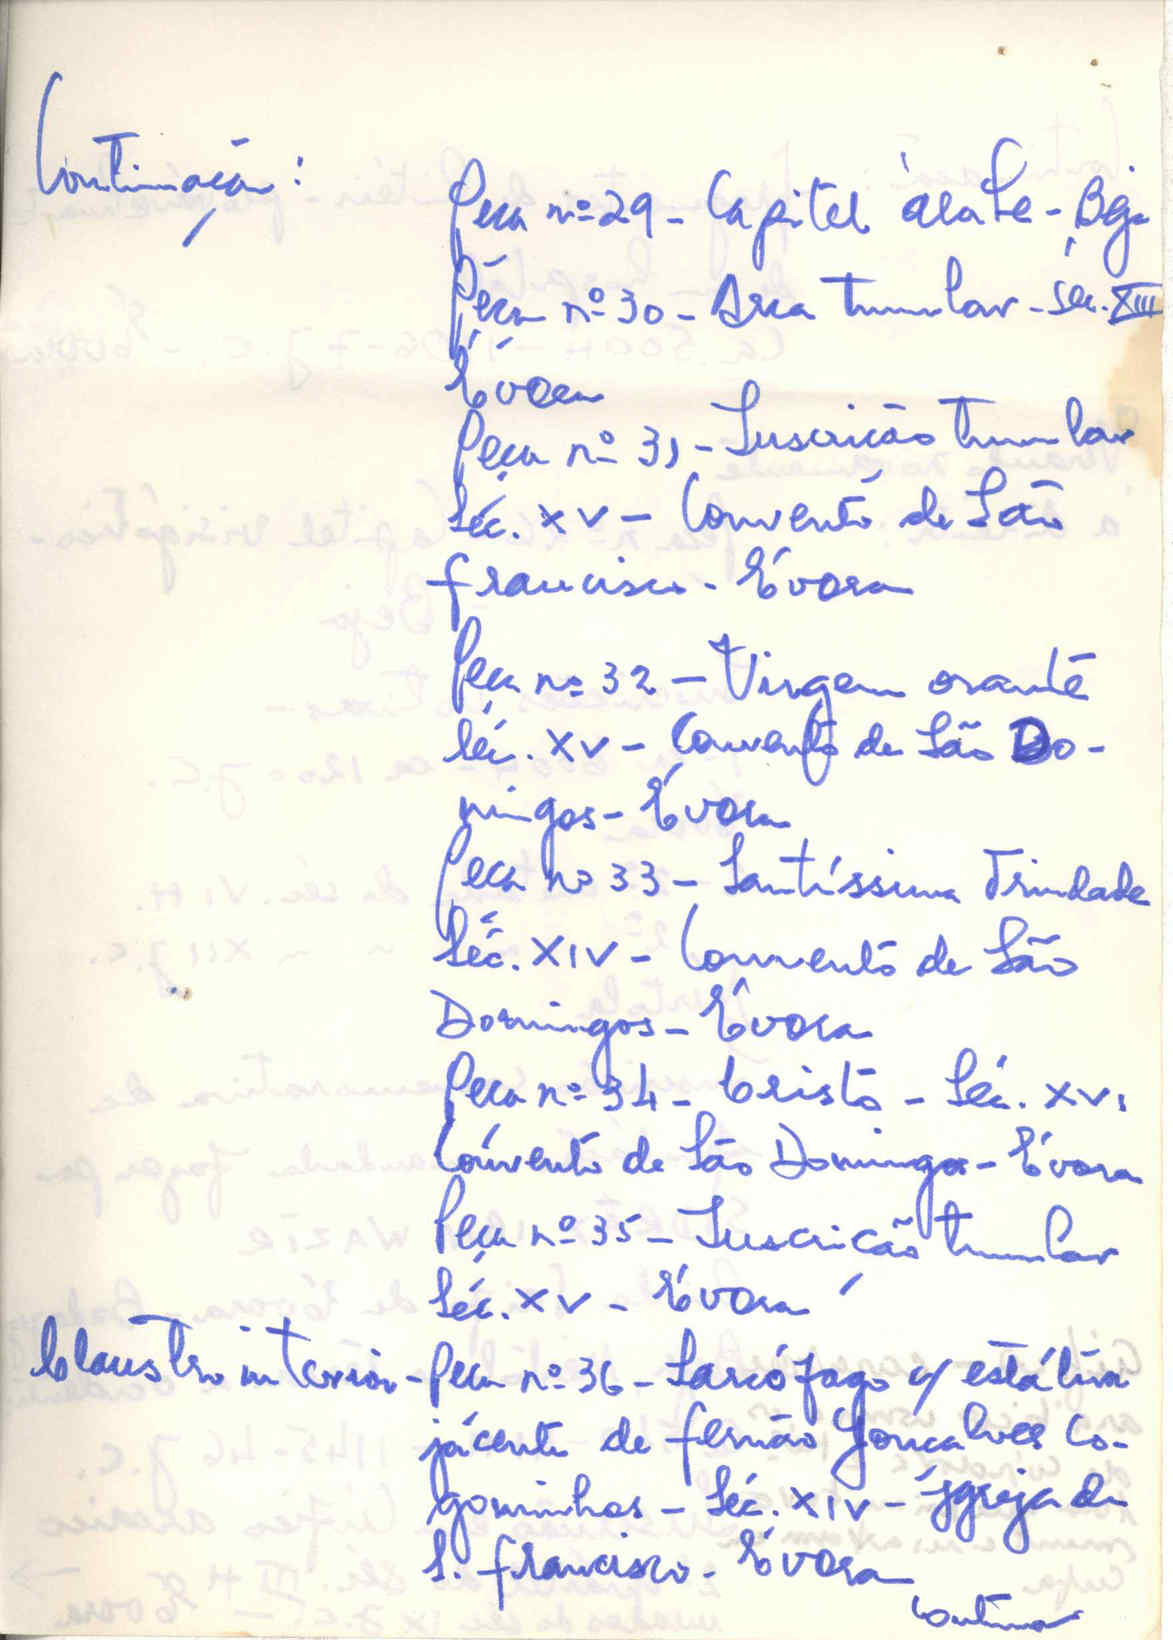 Continuação:
Peça nº 29 - Capitel árabe - Beja
Peça nº 30 - Arca tumular - Séc. XIII
Évora
Peça nº 31 - Inscrição tumular
Séc. XV - Convento de São
Francisco - Évora
Peça nº 32 - Virgem orante
Séc. XV - Convento de São Do-
mingos - Évora
Peça nº 33 - Santíssima Trindade
Séc. XIV - Convento de São
Domingos - Évora
Peça nº 34 - Cristo - Séc. XVI
Convento de São Domingos - Évora
Peça nº 35 - Inscrição tumular
Séc. XV - Évora
Claustro interior - Peça nº 36 - Sarcófago c/ estátua
jacente de Fernão Gonçalves Co-
gominhos - Séc. XIV - Igreja de
S. Francisco - Évora
Continua